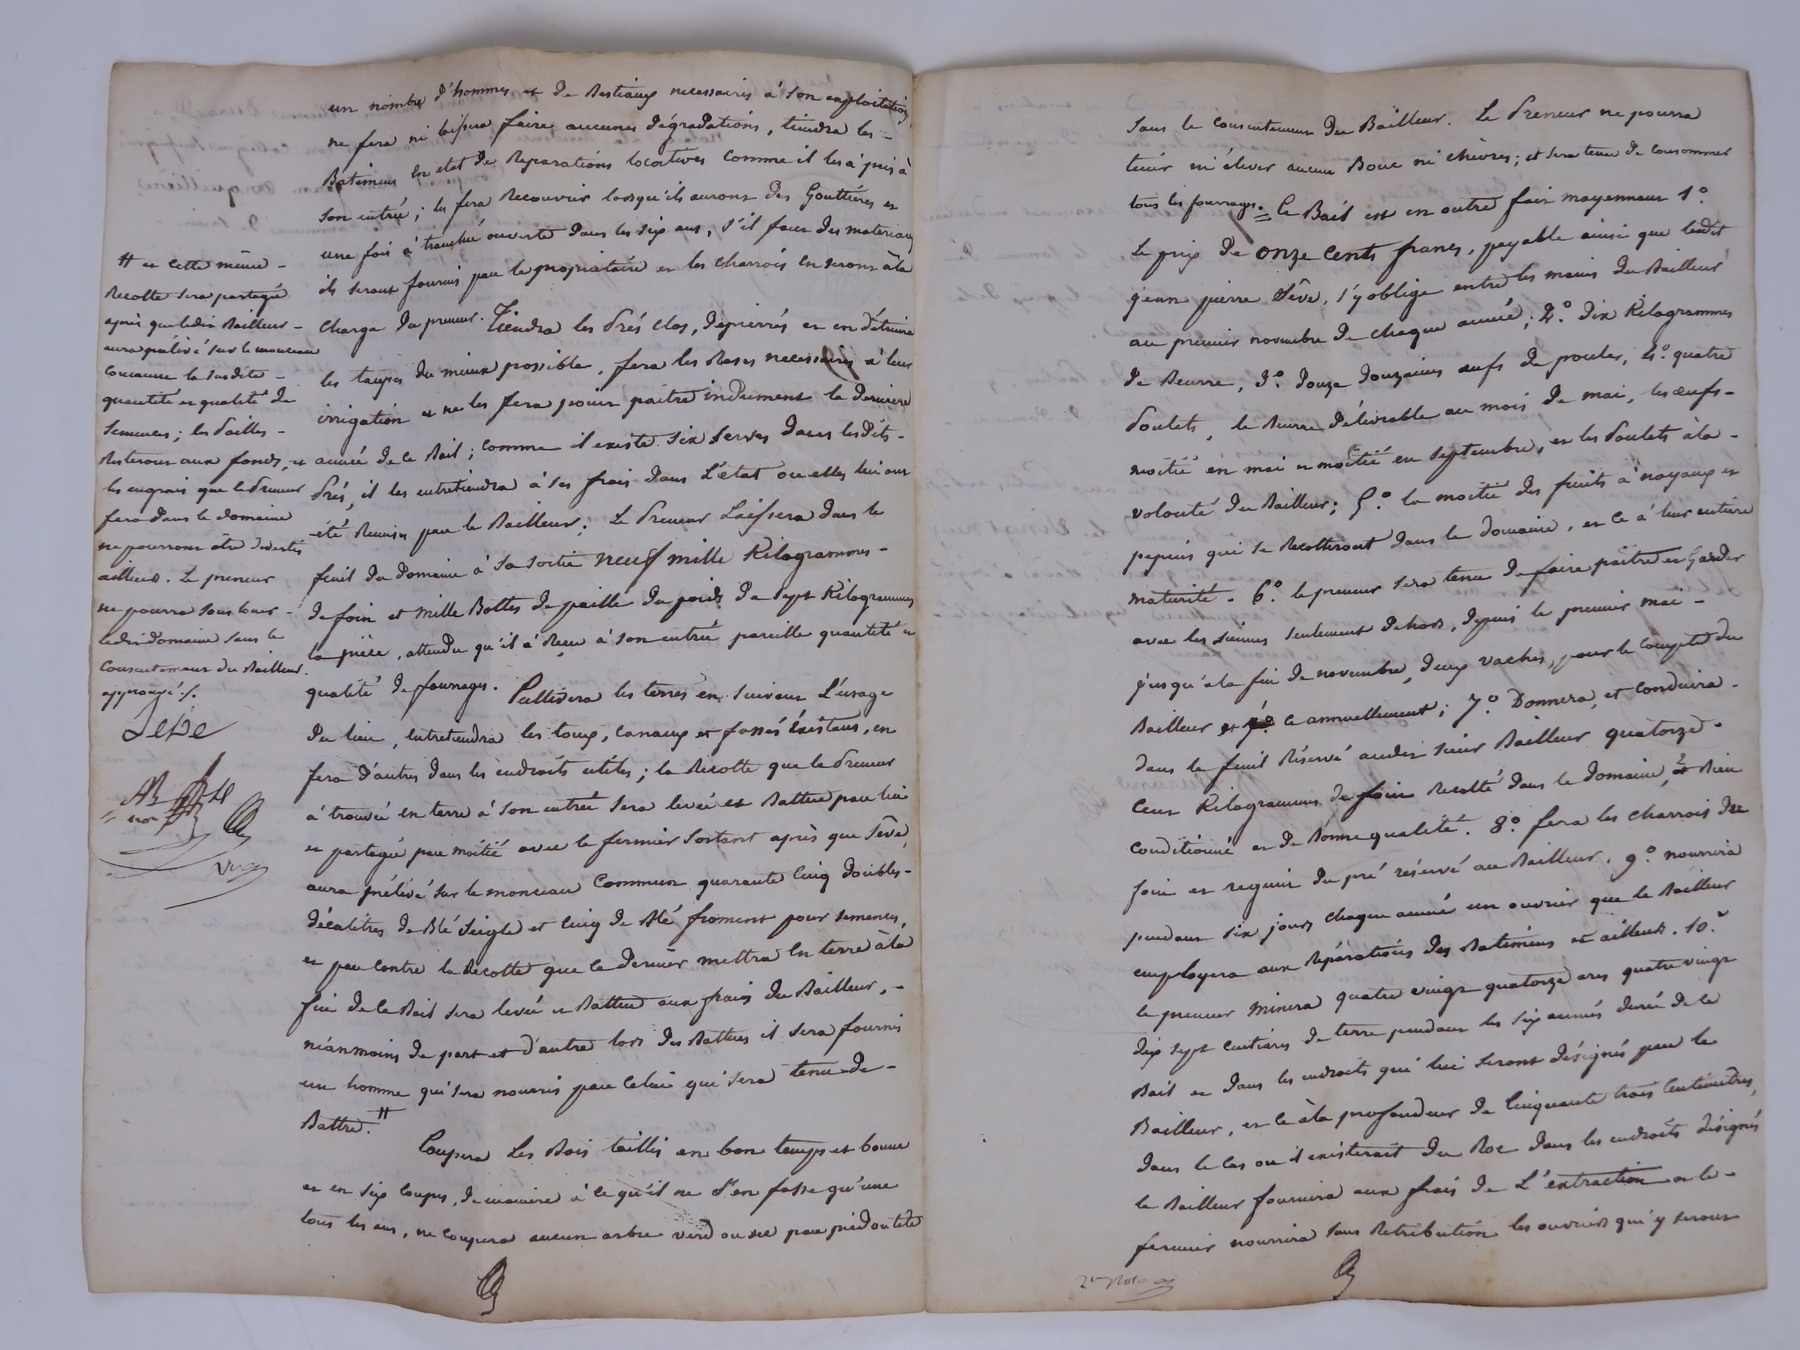 un nombre d'hommes et de Bestiaux necessaires à son exploitation,
ne fera ni laissera faire aucunes dégradations, tiendra les -
Batimens en etat de Reparations locatives comme il les a pris à
son entrée; les fera Recouvrir lorsqu'ils auront des Gouttières et
une fois à tranchée ouverte dans les six ans, s'il faut des materiaux
ils seront fournis par le propriétaire et les charrois en seront à la
charge du preneur. Tiendra les Prés clos, dépierrés et en détruira
les taupes du mieux possible, fera les Rases necessaires à leur
irrigation et ne les fera point paitre indument la derniere
année de ce Bail; comme il existe six serves dans lesdits -
Prés, il les entretiendra à ses frais dans l'état ou elles lui ont
été Remises par le Bailleur; Le Preneur Laissera dans le
fenil du domaine à sa sortie neuf mille Kilogrammes -
de foin et mille Bottes de paille du poids de sept Kilogrammes
la pièce, attendu qu'il a Reçu à son entrée pareille quantité et
qualité de fourrages. Cultivera les terres en suivant l'usage
du lieu, entretiendra les canaux et fossés existans, en
fera d'autres dans les endroits utiles; la Récolte que le Preneur
à trouvée en terre à son entrée sera levée et Battue par lui
et partagée par moitié avec le fermier sortant après que Sève,
aura prélevé sur le monceau Commun quarante Cinq doubles -
décalitres de Blé Seigle et Cinq de Blé froment pour semences,
et par contre la Récolte que ce dernier mettra en terre à la
fin de ce Bail sera levée et Battue aux frais du Bailleur, -
néanmoins de part et d'autre lors des Battues il sera fourni
un homme qui sera nourri par celui qui sera tenu de -
Battre. #
Coupera Les Bois taillis en bon temps et bonne
et en six coupes, de manière à ce qu'il ne s'en fasse qu'une
tous les ans, ne coupera aucun arbre verd ou sec par pied ou tête
# et cette même -
Recolte sera partagée
après que ledit Bailleur -
aura prélevé sur le monceau
Commun la susdite -
quantité et qualité de
semences; les Pailles -
Resteront aux fonds, et
les engrais que le Preneur
fera dans le domaine
ne pourront être divertis
ailleurs. Le preneur
ne pourra sous louer -
ledit domaine sans le
Consentement du Bailleur.
approuvé ./.
Seve
sans le consentement du Bailleur. Le Preneur ne pourra
tenir ni élever aucun Bouc ni chèvres; et sera tenu de consommer
tous les fourrages. = Ce Bail est en outre fait moyennant 1.°
Le prix de onze cents francs, payable ainsi que ledit
Jean pierre Sève, s'y oblige entre les mains du Bailleur
au premier novembre de chaque année; 2.° dix Kilogrammes
de Beurre, 3.° douze douzaines œufs de poules, 4.° quatre
Poulets, le Beurre délivrable au mois de mai, les œufs -
moitié en mai et moitié en septembre, et les Poulets à la -
volonté du Bailleur; 5.° la moitié des fruits à noyaux et
pepins qui se Recolteront dans le domaine, et ce à leur entière
maturité - 6.° le preneur sera tenu de faire paître et Garder
avec les siennes seulement dehors, depuis le premier mai -
jusqu'à la fin de novembre, deux vaches, pour le compte du
Bailleur et ce annuellement; 7.° Donnera, et conduira -
dans le fenil Réservé audit sieur Bailleur quatorze -
cent Kilogrammes de foin Recolté dans le domaine, et Bien
conditionné et de Bonne qualité. 8.° fera les charrois du
foin et regain du pré réservé au Bailleur. 9.° nourrira
pendant six jours chaque année un ouvrier que le Bailleur
employera aux Réparations des Batimens et ailleurs. 10.°
le preneur Minera quatre vingt quatorze ares quatre vingt
dix sept centiares de terre pendant les six années durée de ce
Bail et dans les endroits qui lui seront désignés par le
Bailleur, et ce à la profondeur de Cinquante trois Centimètres,
dans le Cas ou il existerait du Roc dans les endroits désignés
le Bailleur fournira aux frais de L'extraction et le -
fermier nourrira sans Retribution les ouvriers qui y seront